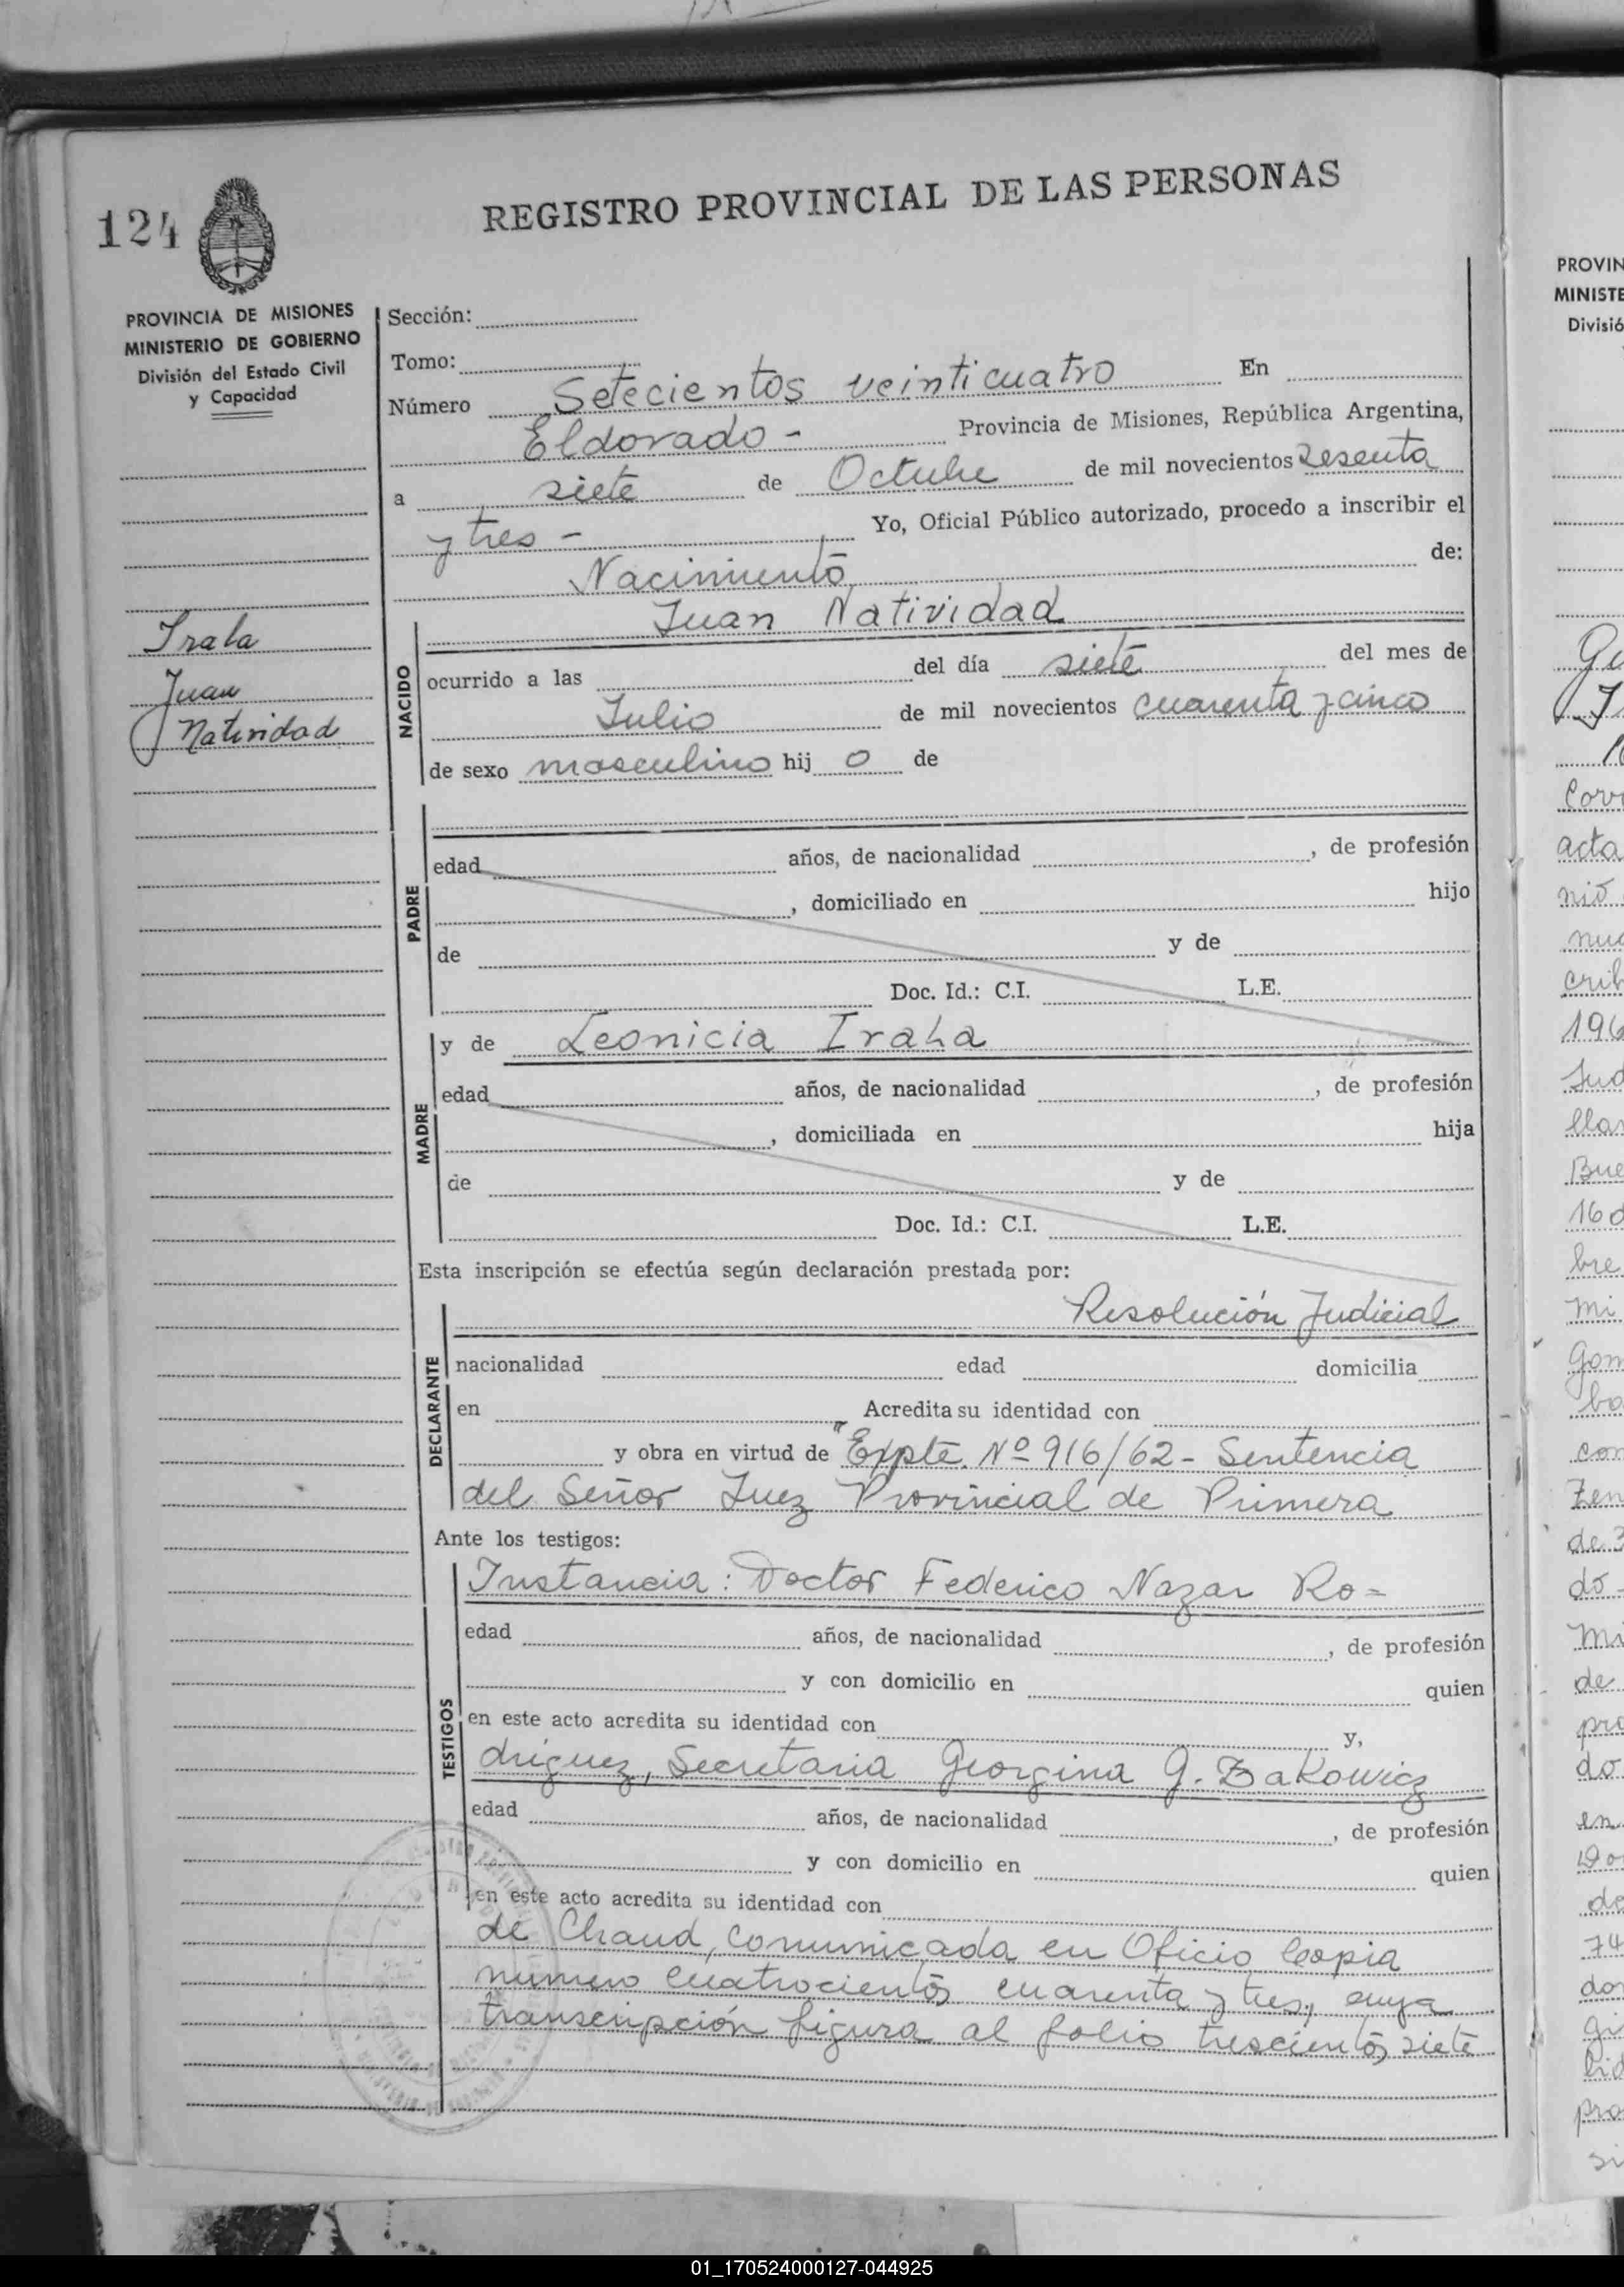 REGISTRO PROVINCIAL DE LAS PERSONAS
124
PROVINCIA DE MISIONES
MINISTERIO DE GOBIERNO
División del Estado Civil
y Capacidad
Irala
Juan
Natividad
Sección:
Tomo:
Número Setecientos veinticuatro En
Eldorado - Provincia de Misiones, República Argentina,
a siete de Octubre de mil novecientos sesenta
y tres - Yo, Oficial Público autorizado, procedo a inscribir el
Nacimiento de:
Juan Natividad
NACIDO
ocurrido a las del día siete del mes de
Julio de mil novecientos cuarenta y cinco
de sexo masculino hij o de
PADRE
edad años, de nacionalidad , de profesión
, domiciliado en hijo
de y de
Doc. Id.: C.I. L.E.
y de Leonicia Irala
MADRE
edad años, de nacionalidad , de profesión
, domiciliada en hija
de y de
Doc. Id.: C.I. L.E.
Esta inscripción se efectúa según declaración prestada por:
Resolución Judicial
DECLARANTE
nacionalidad edad domicilia
en Acredita su identidad con
y obra en virtud de "Expte. Nº 916/62 - Sentencia
del Señor Juez Provincial de Primera
Ante los testigos:
Instancia: Doctor Federico Nazar Ro=
TESTIGOS
edad años, de nacionalidad , de profesión
y con domicilio en quien
en este acto acredita su identidad con y,
driguez, Secretaria Georgina G. Zakowicz
edad años, de nacionalidad , de profesión
y con domicilio en quien
en este acto acredita su identidad con
de Chaud, comunicada en Oficio Copia
numero cuatrocientos cuarenta y tres, cuya
transcripción figura al folio trescientos siete
PROVIN
MINISTE
Divisió
acta
196
Bue
16 d
bre
mi
de
pro
do
en
de
74
pro
01_170524000127-044925